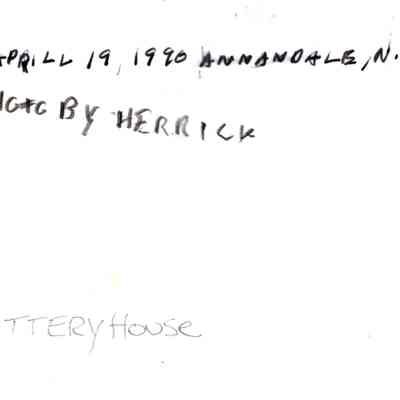 APRILL 19, 1990 ANNANDALE, N.
BY HERRICK
TTERY HOUSE